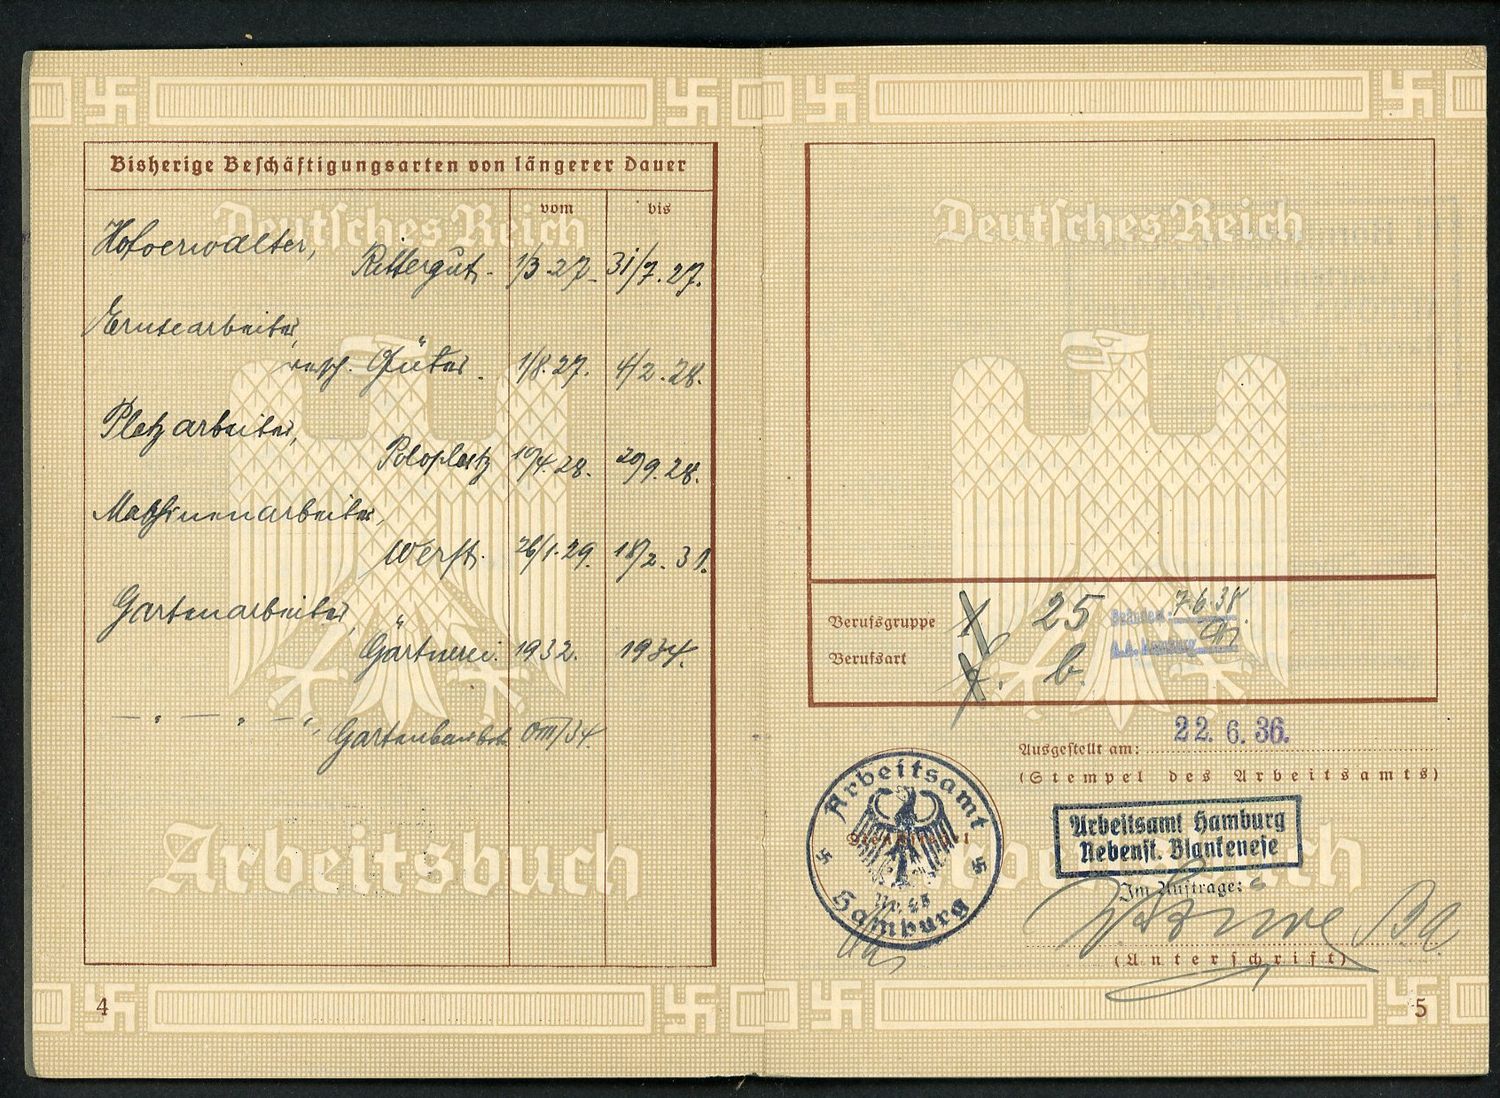 Bisherige Beschäftigungsarten von längerer Dauer
vom bis
Deutsches Reich
Hofverwalter,
Rittergut. 1/3.27. 31/7.27.
Erntearbeiter,
versch. Güter. 1/8.27. 4/2.28.
Platzarbeiter,
Poloplatz 19/4.28. 29/9.28.
Maschinenarbeiter,
Werft. 26/1.29. 18/2.31.
Gartenarbeiter,
Gärtnerei. 1932. 1934.
Arbeitsbuch
4
Deutsches Reich
Berufsgruppe 25
7.6.38
A.A. Hamburg
Berufsart b.
Ausgestellt am: 22. 6. 36.
(Stempel des Arbeitsamts)
Arbeitsamt
Hamburg
Arbeitsamt Hamburg
Nebenst. Blankenese
Im Auftrage:
(Unterschrift)
5